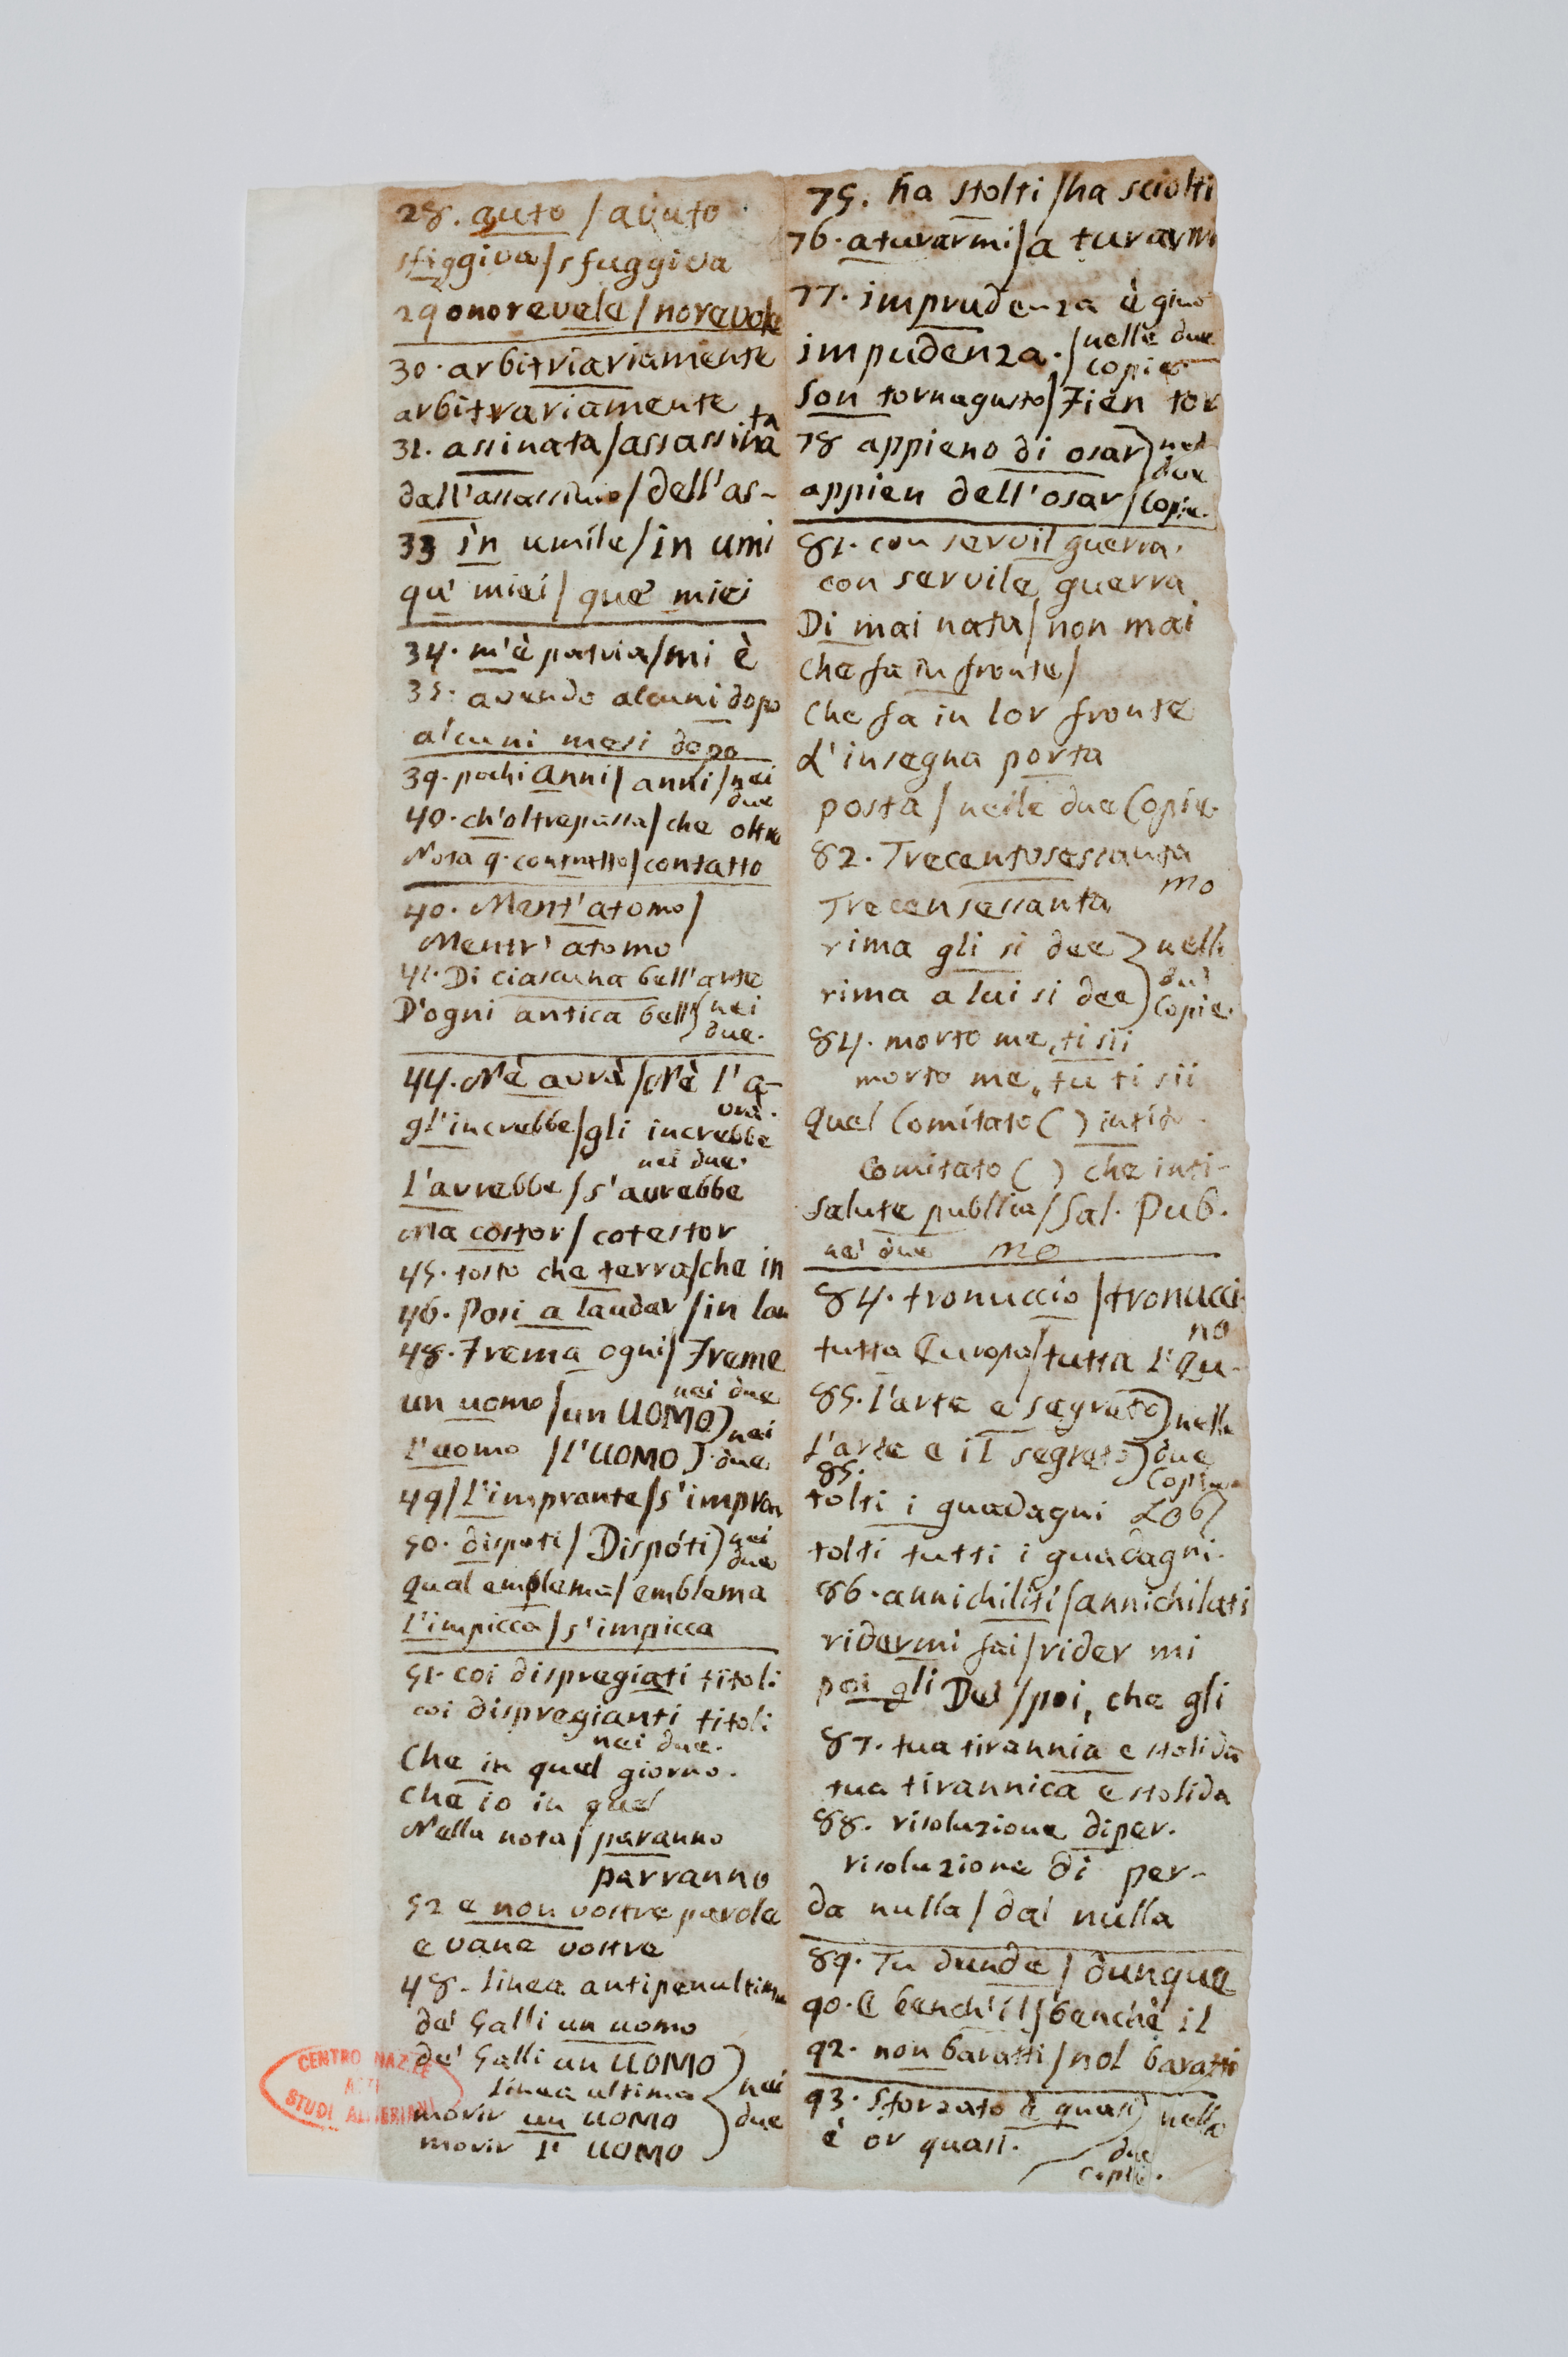 28. auto / avuto
sfiggiva / sfuggiva
29 onorevele / norevole
30. arbitriariamente
arbitrariamente
31. assinata / assassina
ta
dall'assassinio / dell'as-
33 in umile / in umi
qu' miei / que' miei
34. m'è patria / mi è
35. avendo alcuni dopo
alcuni mesi dopo
39. pochi anni / anni / nei
due
40. ch'oltrepassa / che oltre
Nota q. contratto / contatto
40. Ment'atomo /
Mentr' atomo
41. Di ciascuna bell'arte
D'ogni antica bell' nei
due.
44. Nè avrà / Nè l'a-
vrà.
gl'increbbe / gli increbbe
nei due.
L'avrebbe / s'avrebbe
Ma costor / cotestor
45. tosto che terra / che in
46. Posi a laudar / in lau
48. Frema ogni / Freme
nei due
un uomo / un UOMO) nei
L'uomo / L'UOMO) due
49 / L'impronte / s'impron
50. dispoti / Dispóti) nei
due
Qual emplema / emblema
L'impicca / s'impicca
51. coi dispregiati titoli
coi dispregianti titoli
nei due.
Che in quel giorno.
Che io in quel
Nella nota / paranno
parranno
52 e non vostre parole
e vane vostre
48. linea antipenultima
de' Galli un uomo
de' Galli un UOMO
linea ultima
nei
morir un UOMO
due
morir l' UOMO
75. ha stolti / ha sciolti
76. aturarmi / a turarmi
77. imprudenza è giuno
impudenza. / nelle due
copie.
Son tornagusto / Fien tor
78 appieno di osar) nel
due
appien dell'osar / copie.
81. con servil guerra.
con servile guerra
Di mai nata / non mai
che fa in fronte /
che fa in lor fronte
d'insegna porta
posta / nelle due Copie.
82. Trecentosessanta
mo
Trecensessanta
rima gli si dee } nelle
due
rima a lui si dee) Copie.
84. morto me, ti sii
morto me, tu ti sii
Quel Comitato ( ) intit
Comitato ( ) che inti-
Salute publlica / Sal. Pub.
ne' due mo
84. tronuccio / tronucci
no
tutta Europa / tutta l'Eu-
85. L'arte e segreto) nelle
L'arte e il segreto) due
Copie
85.
tolti i guadagni
tolti tutti i guadagni.
86. annichiliti / annichilati
ridermi fai / rider mi
poi gli Dei / poi, che gli
87. tua tirannia e stolida
tua tirannica e stolida
88. risoluzione diper.
risoluzione di per-
da nulla / dal nulla
89. Tu dunde / dunque
90. E bench'il / benchè il
92. non baratti / nol baratti
93. Sforzato è quasi) nelle
è or quasi.
due
copie.
CENTRO NAZ.LE
ASTI
STUDI ALFIERIANI